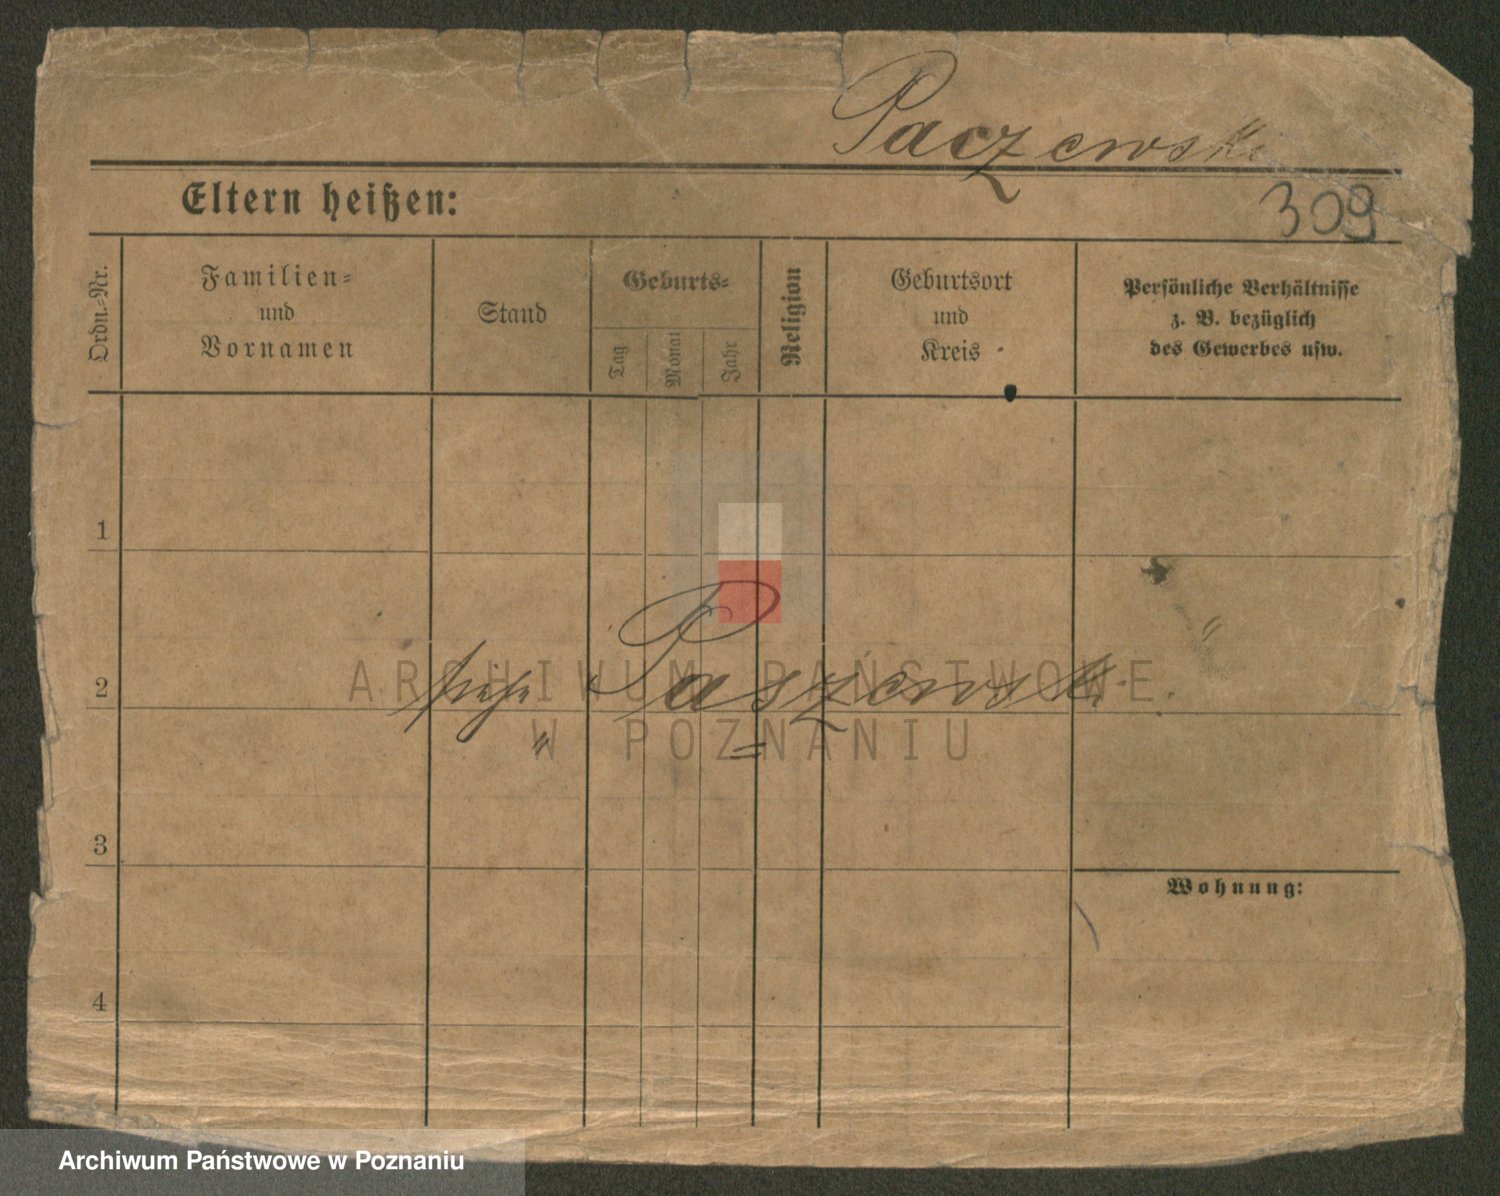 Paczewski
Eltern heißen:
309
Ordn.-Nr.
Familien-
und
Vornamen
Stand
Geburts-
Tag
Monat
Jahr
Religion
Geburtsort
und
Kreis
Persönliche Verhältnisse
z. B. bezüglich
des Gewerbes usw.
1
2
siehe Paszewski
ARCHIWUM PAŃSTWOWE
W POZNANIU
3
Wohnung:
4
Archiwum Państwowe w Poznaniu